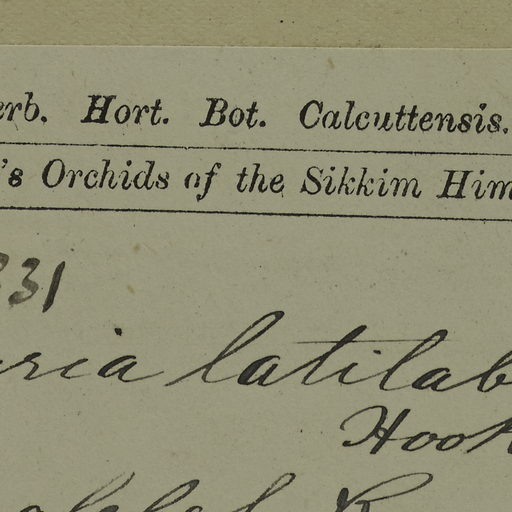 erb. Hort. Bot. Calcuttensis.
's Orchids of the Sikkim Him
331
aria latilab
Hook